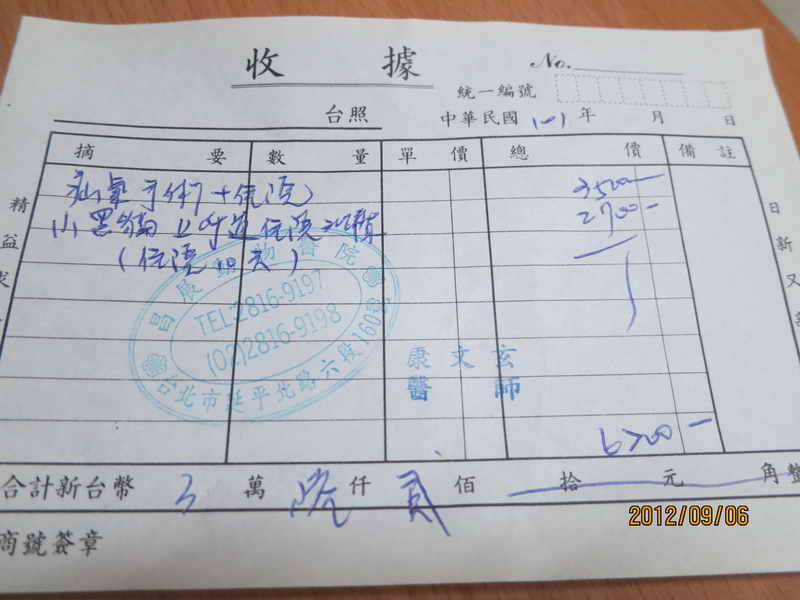 收 據
No.
統一編號
台照
中華民國 101 年 月 日
摘 要 數 量 單 價 總 價 備 註
疝氣手術+住院 3500
小黑貓上呼道住院治療 2700
(住院10天)
精益求
日新又
昌展動物醫院
TEL:2816-9197
(02)2816-9198
台北市延平北路六段160號
康文玄
醫師
6200
合計新台幣 萬 陸 仟 貳 佰 拾 元 角 整
商號簽章
2012/09/06